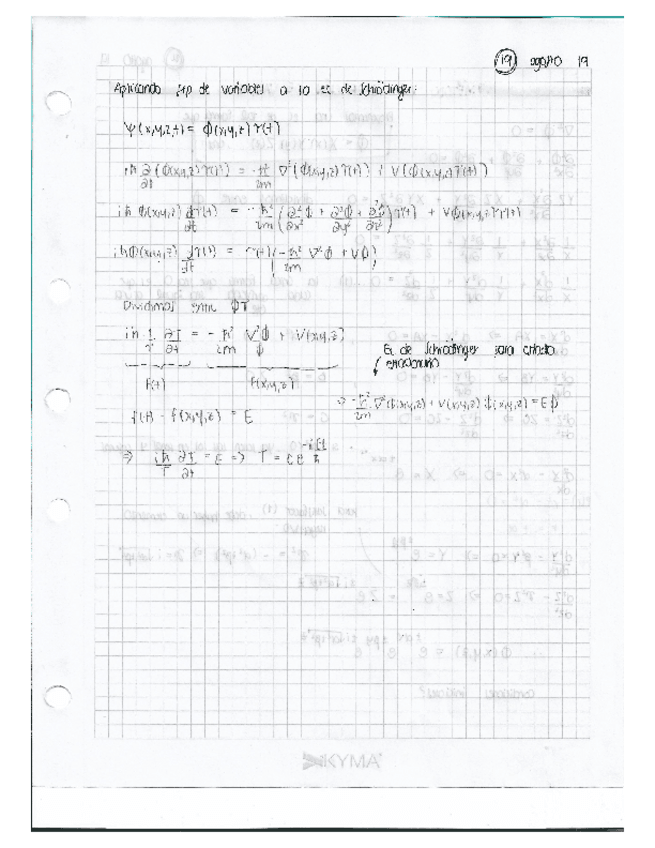 19 agosto 19
Aplicando sep de variables a la ec de Schrödinger:
Ψ(x,y,z,t) = ϕ(x,y,z) T(t)
iħ ∂/∂t (ϕ(x,y,z) T(t)) = -ħ²/2m ∇²(ϕ(x,y,z) T(t)) + V(ϕ(x,y,z) T(t))
iħ ϕ(x,y,z) d/dt T(t) = -ħ²/2m (∂²ϕ/∂x² + ∂²ϕ/∂y² + ∂²ϕ/∂z²) T(t) + Vϕ(x,y,z) T(t)
iħ ϕ(x,y,z) d/dt T(t) = T(t) (-ħ²/2m ∇²ϕ + Vϕ)
Dividimos entre ϕT
iħ 1/T ∂T/∂t = -ħ²/2m ∇²ϕ/ϕ + V(x,y,z)
F(t) F(x,y,z)
Ec de Schrödinger para estado
estacionario
-ħ²/2m ∇²ϕ(x,y,z) + V(x,y,z) ϕ(x,y,z) = Eϕ
f(t) = f(x,y,z) = E
⇒ iħ/T ∂T/∂t = E ⇒ T = C e^(-iEt/ħ)
KYMA